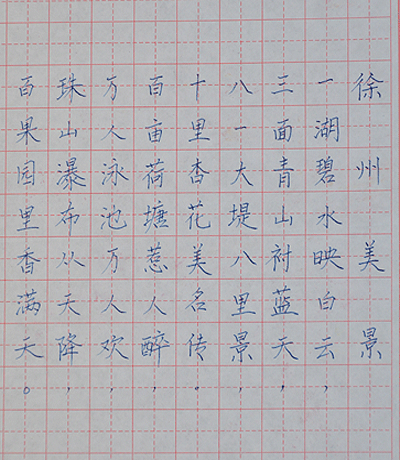 徐州美景
一湖碧水映白云，
三面青山衬蓝天，
八一大堤八里景，
十里杏花美名传。
百亩荷塘惹人醉，
万人泳池万人欢，
珠山瀑布从天降，
百果园里香满天。